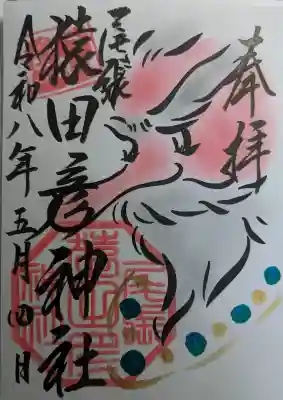 奉拝
尾張
猿田彦神社
令和八年五月四日